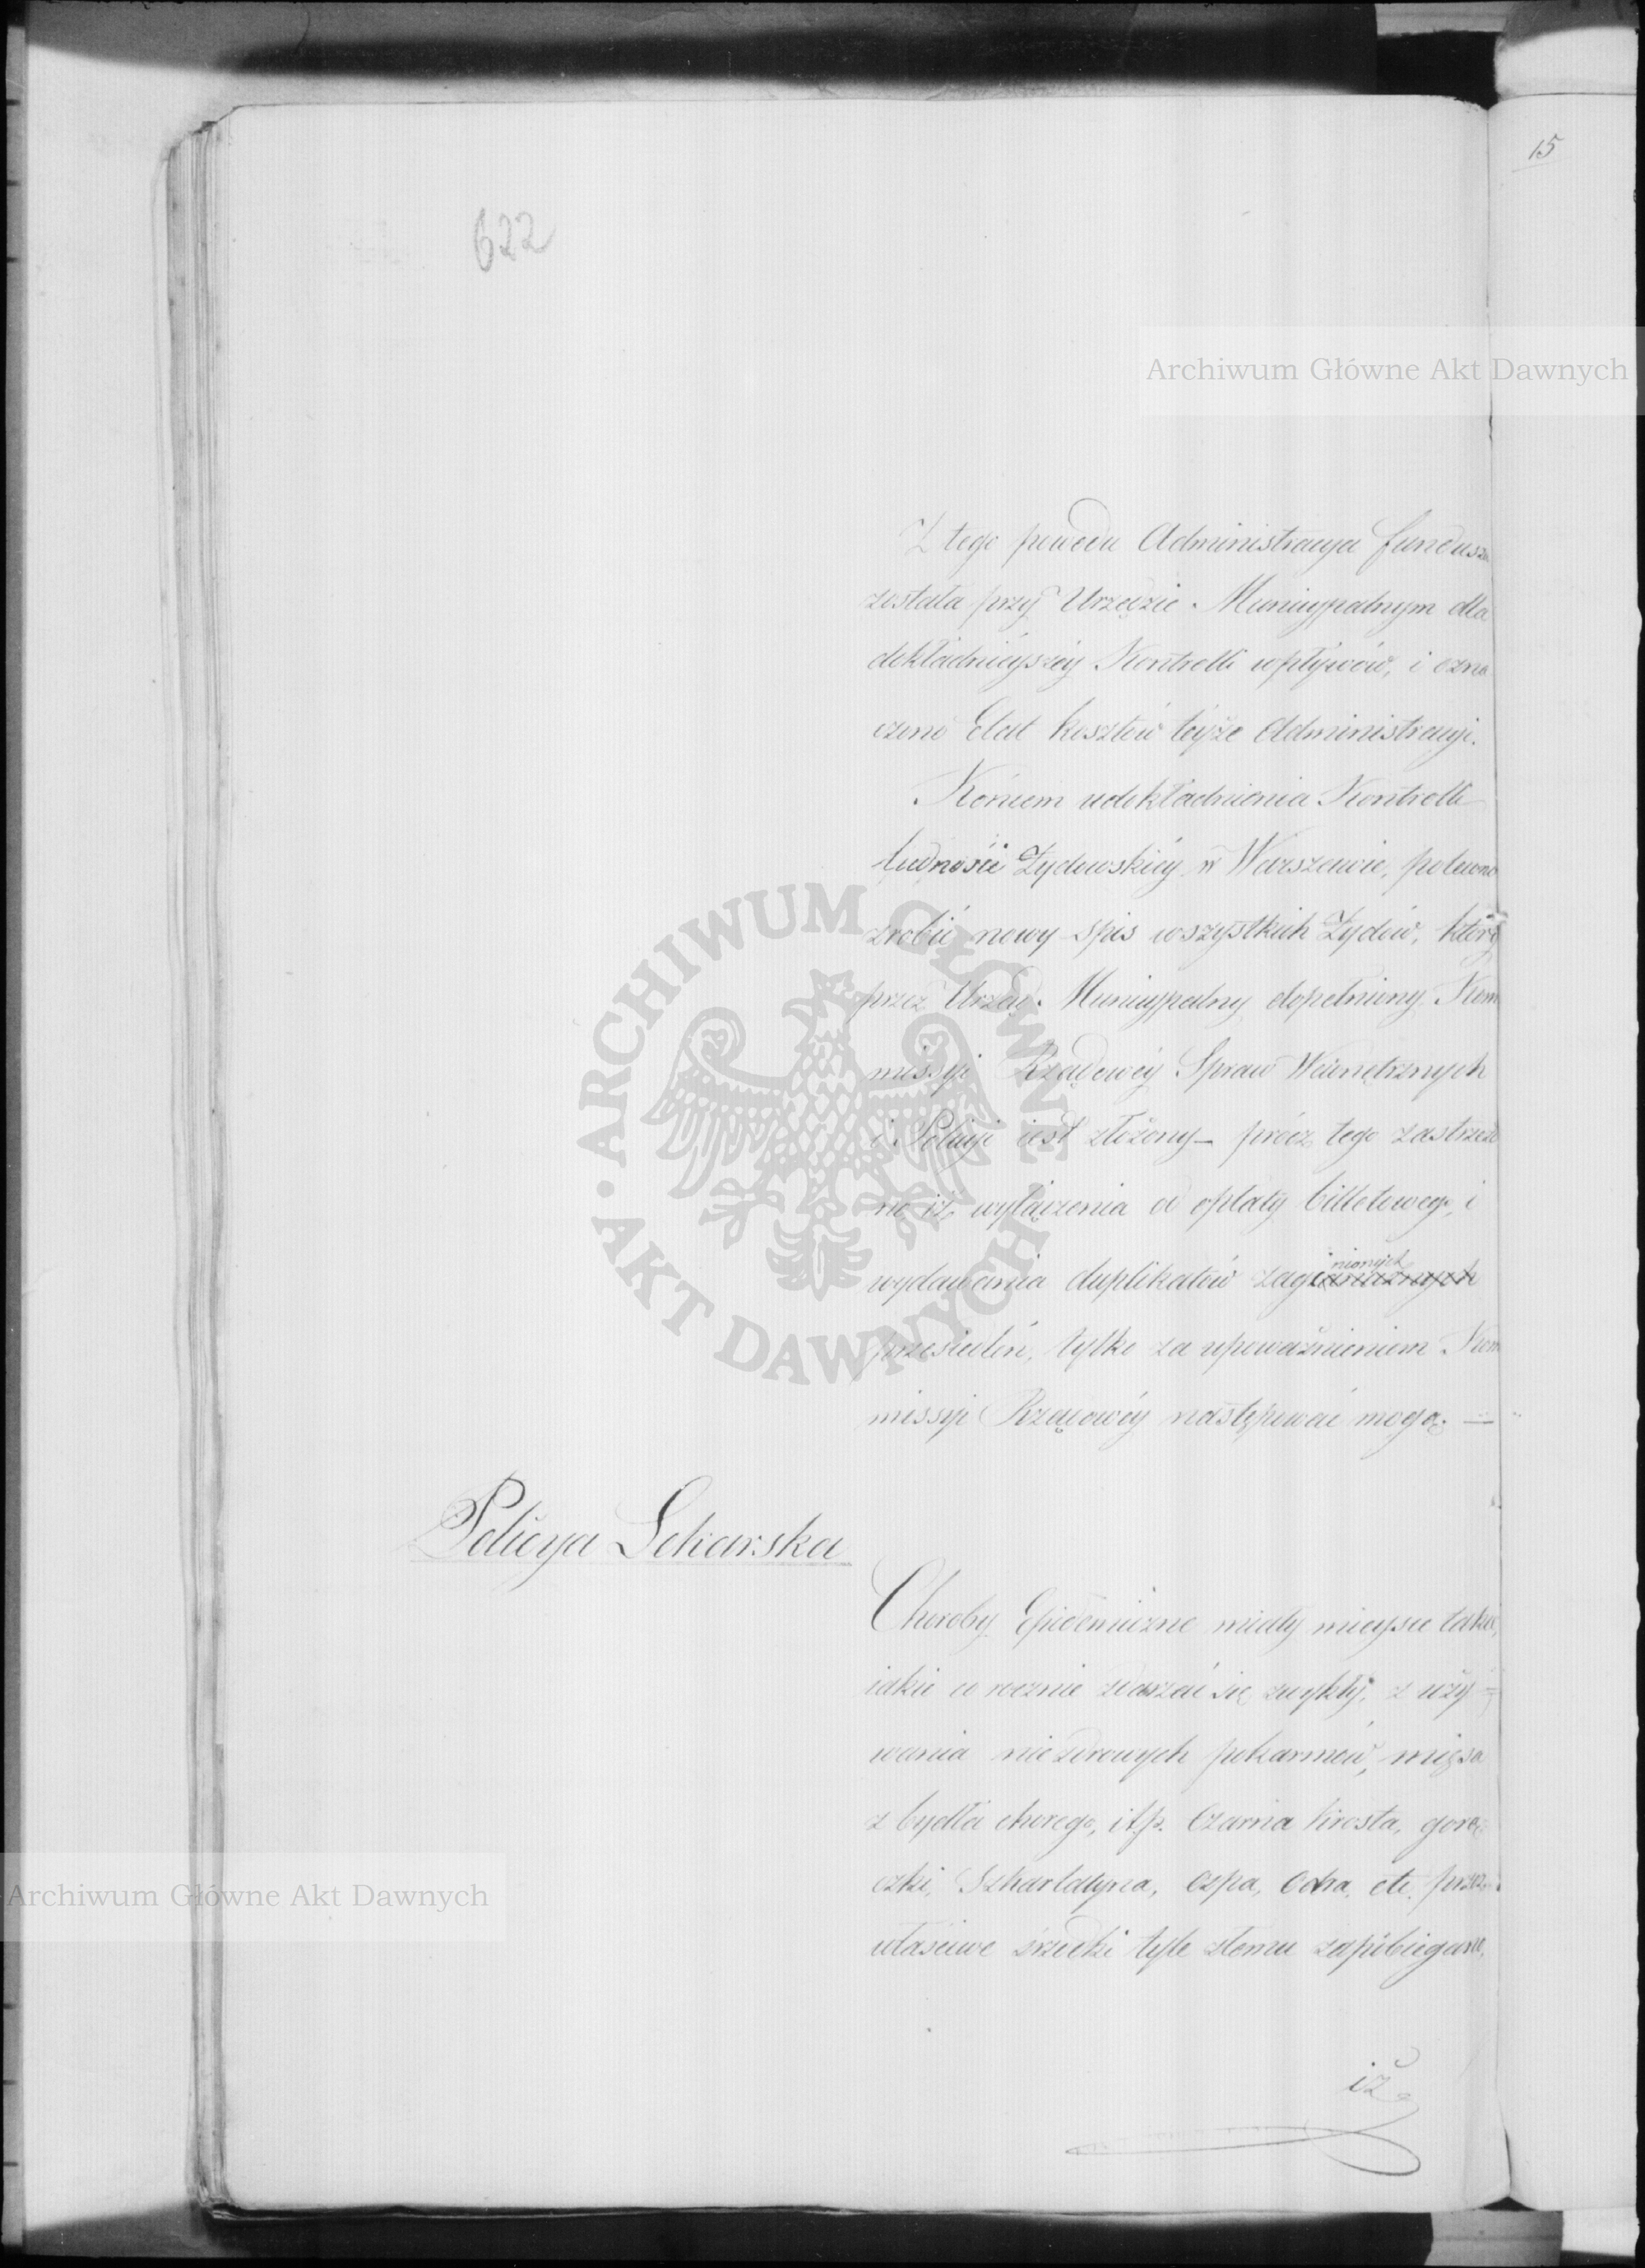 15
622
Archiwum Główne Akt Dawnych
Z tego powodu Administracya fundusz
została przy Urzędzie Municypalnym dla
dokładnieyszéy Kontrolli wpływów, i ozna
czono Etat kosztów téyże Administracyi.
Końcem udokładnienia Kontrolli
ludności Żydowskiéy w Warszawie, polecono
zrobić nowy spis wszystkich Żydów, który
przez Urząd Municypalny dopełniony Kom
missyi Rządowéy Spraw Wewnętrznych
i Policyi iest złożony – prócz tego zastrzeżo
no iż wyłączenia od opłaty billetowego, i
nionych
wydawania duplikatów zagranicznych
przesiedleń, tylko za upoważnieniem Kom
missyi Rządowéy następować mogą. —
Policya Lekarska
Choroby Epidemiczne miały mieysce takie,
iakie co rocznie zdarzać się zwykły, z uży=
wania niezdrowych pokarmów, mięsa
z bydła chorego, i t.p. Czarna krosta, gorą
czki, Szkarlatyna, Ospa, Odra, etc. przez
właściwe środki tyle złemu zapobiegano,
iż
ARCHIWUM GŁÓWNE · AKT DAWNYCH ·
Archiwum Główne Akt Dawnych